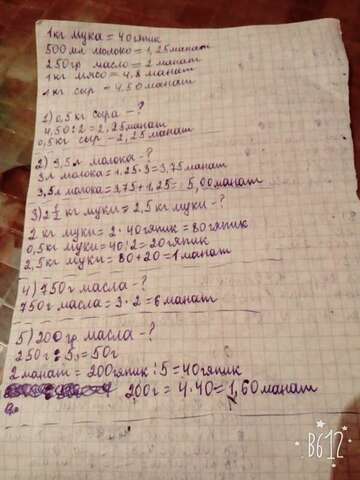 1кг мука = 40гяпик
500мл молоко = 1,25манат
250гр масло = 2 манат
1кг мясо = 4,8 манат
1кг сыр = 4,50манат
1) 0,5 кг сыра - ?
4,50:2 = 2,25манат
0,5кг сыр - 2,25 манат
2) 3,5л молока - ?
3л молока = 1,25·3 = 3,75манат
3,5л молока = 3,75+1,25 = 5,00манат
3) 2 1/2 кг муки = 2,5кг муки - ?
2 кг муки = 2·40гяпик = 80гяпик
0,5кг муки = 40:2 = 20гяпик
2,5кг муки = 80+20 = 1манат
4) 750г масла - ?
750г масла = 3·2 = 6манат
5) 200гр масла - ?
250г:5 = 50г
2манат = 200гяпик:5 = 40гяпик
200г = 4·40 = 1,60манат
B612